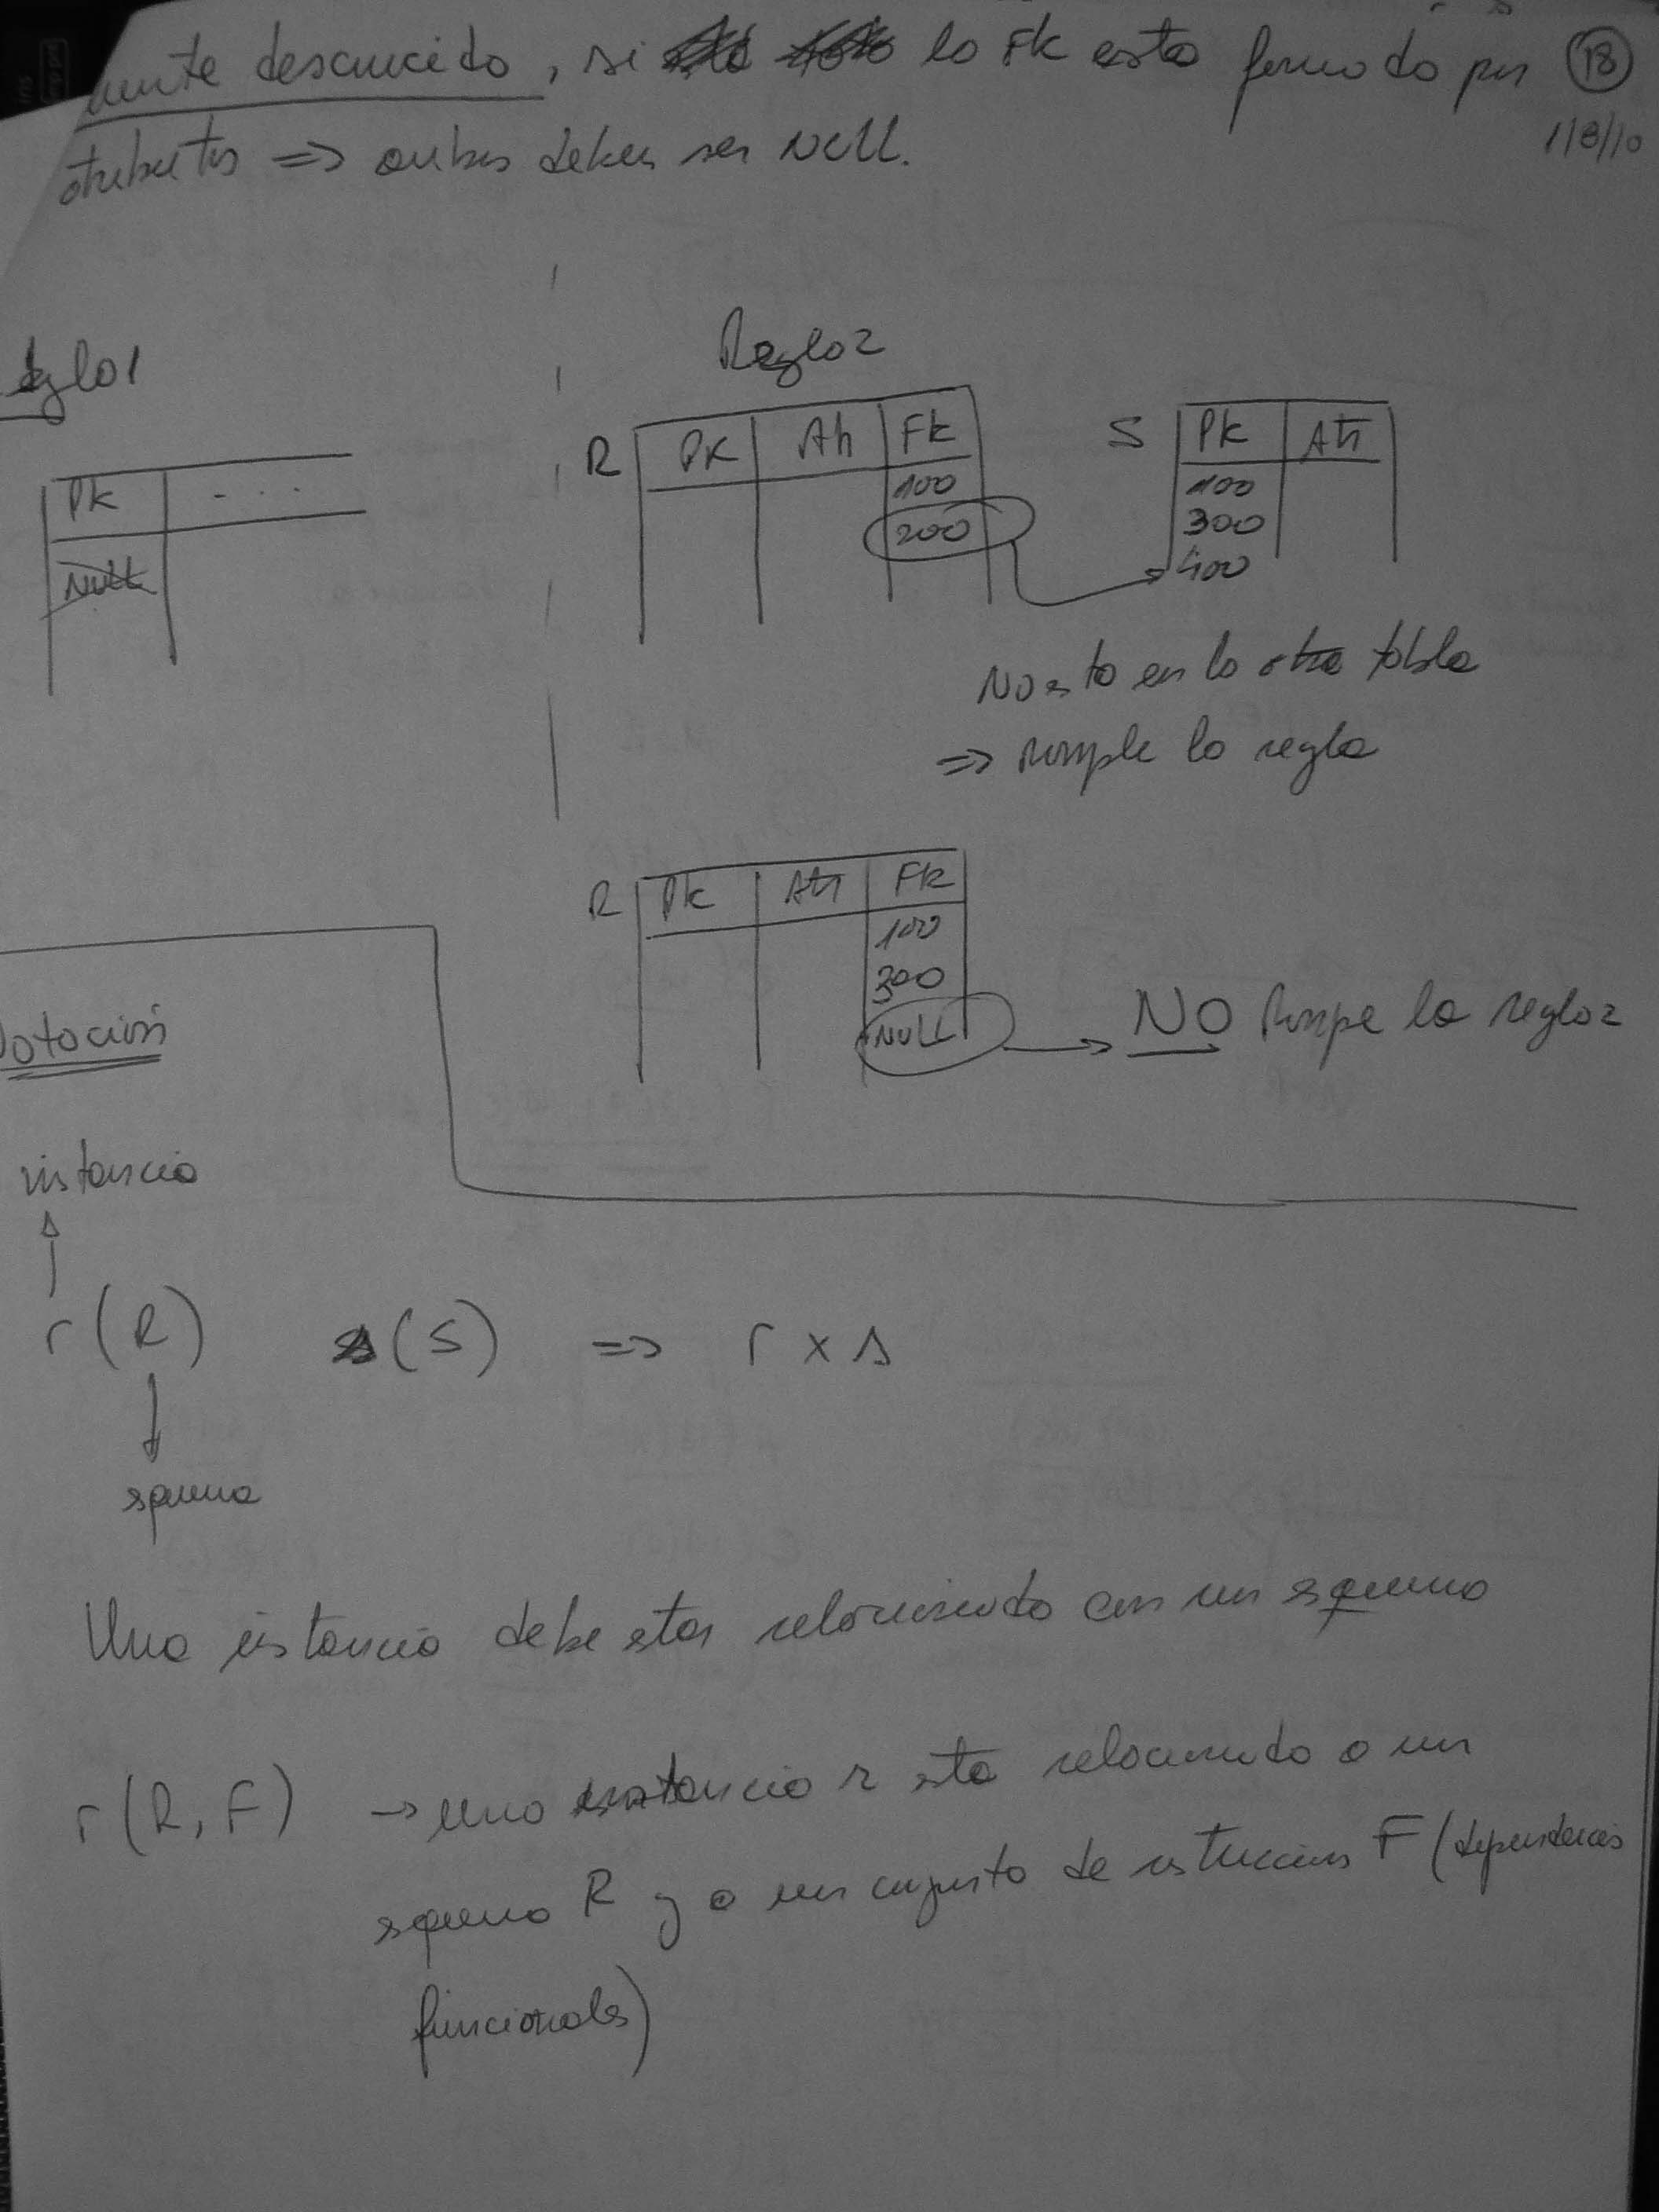 mente desconocido, si la Fk esta formada por
atributos => ambos deben ser NULL.
18
1/8/10
egla1
Pk ...
NULL
Regla2
R Pk Atr Fk
100
200
S Pk Atr
100
300
400
No esta en la otra tabla
=> rompe la regla
R Pk Atr Fk
100
300
NULL
→ NO Rompe la regla 2
otación
instancia
r(R) s(S) => r x s
squema
Una instancia debe estar relacionada con un esquema
r(R, F) → una instancia r esta relacionada a un
squema R y a un conjunto de F (dependencias
funcionales)